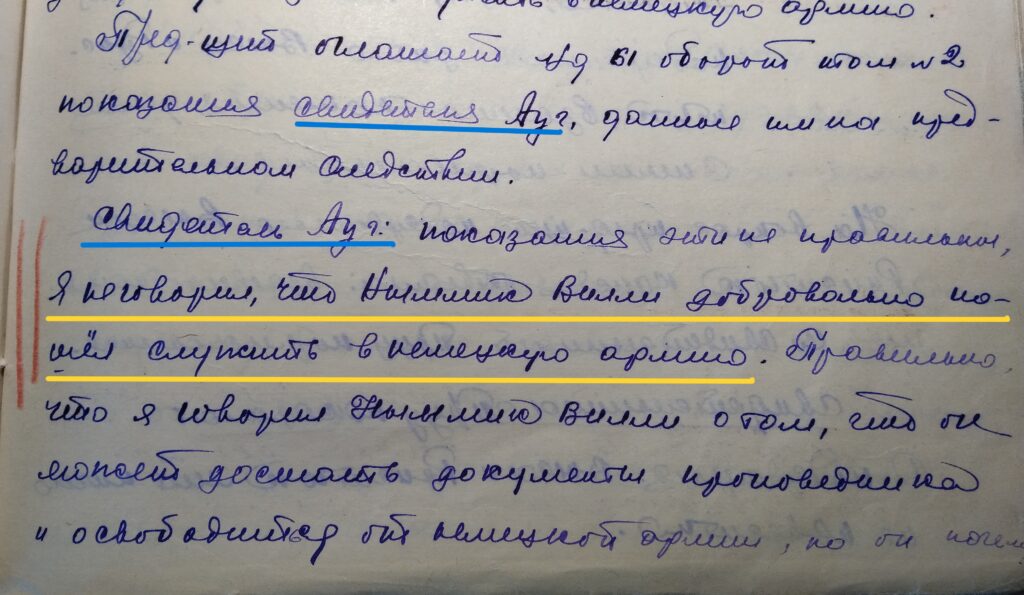 в немецкую армию.
Пред-щий оглашает лд 61 оборот том №2
показания свидетеля Ауг, данные им на пред-
варительном следствии.
Свидетель Ауг: показания эти не правильные,
я не говорил, что Ныммик Вилли добровольно по-
шёл служить в немецкую армию. Правильно,
что я говорил Ныммик Вилли о том, что он
может достать документы проповедника
и освободиться от немецкой армии, но он